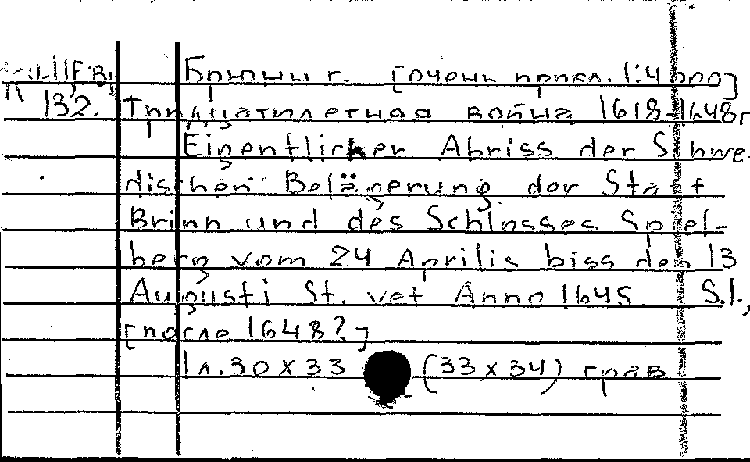 132.
Брюнн г. [очень прибл. 1:4 000]
Тридцатилетная война 1618-1648г
Eigentlicher Abriss der Schwe-
dischen Belägerung der Statt
Brinn und des Schlosses Spiel-
berg vom 24 Aprilis biss den 13
Augusti St. vet Anno 1645. S.l.,
[после 1648?]
1 л. 30 x 33 (33 x 34) грав